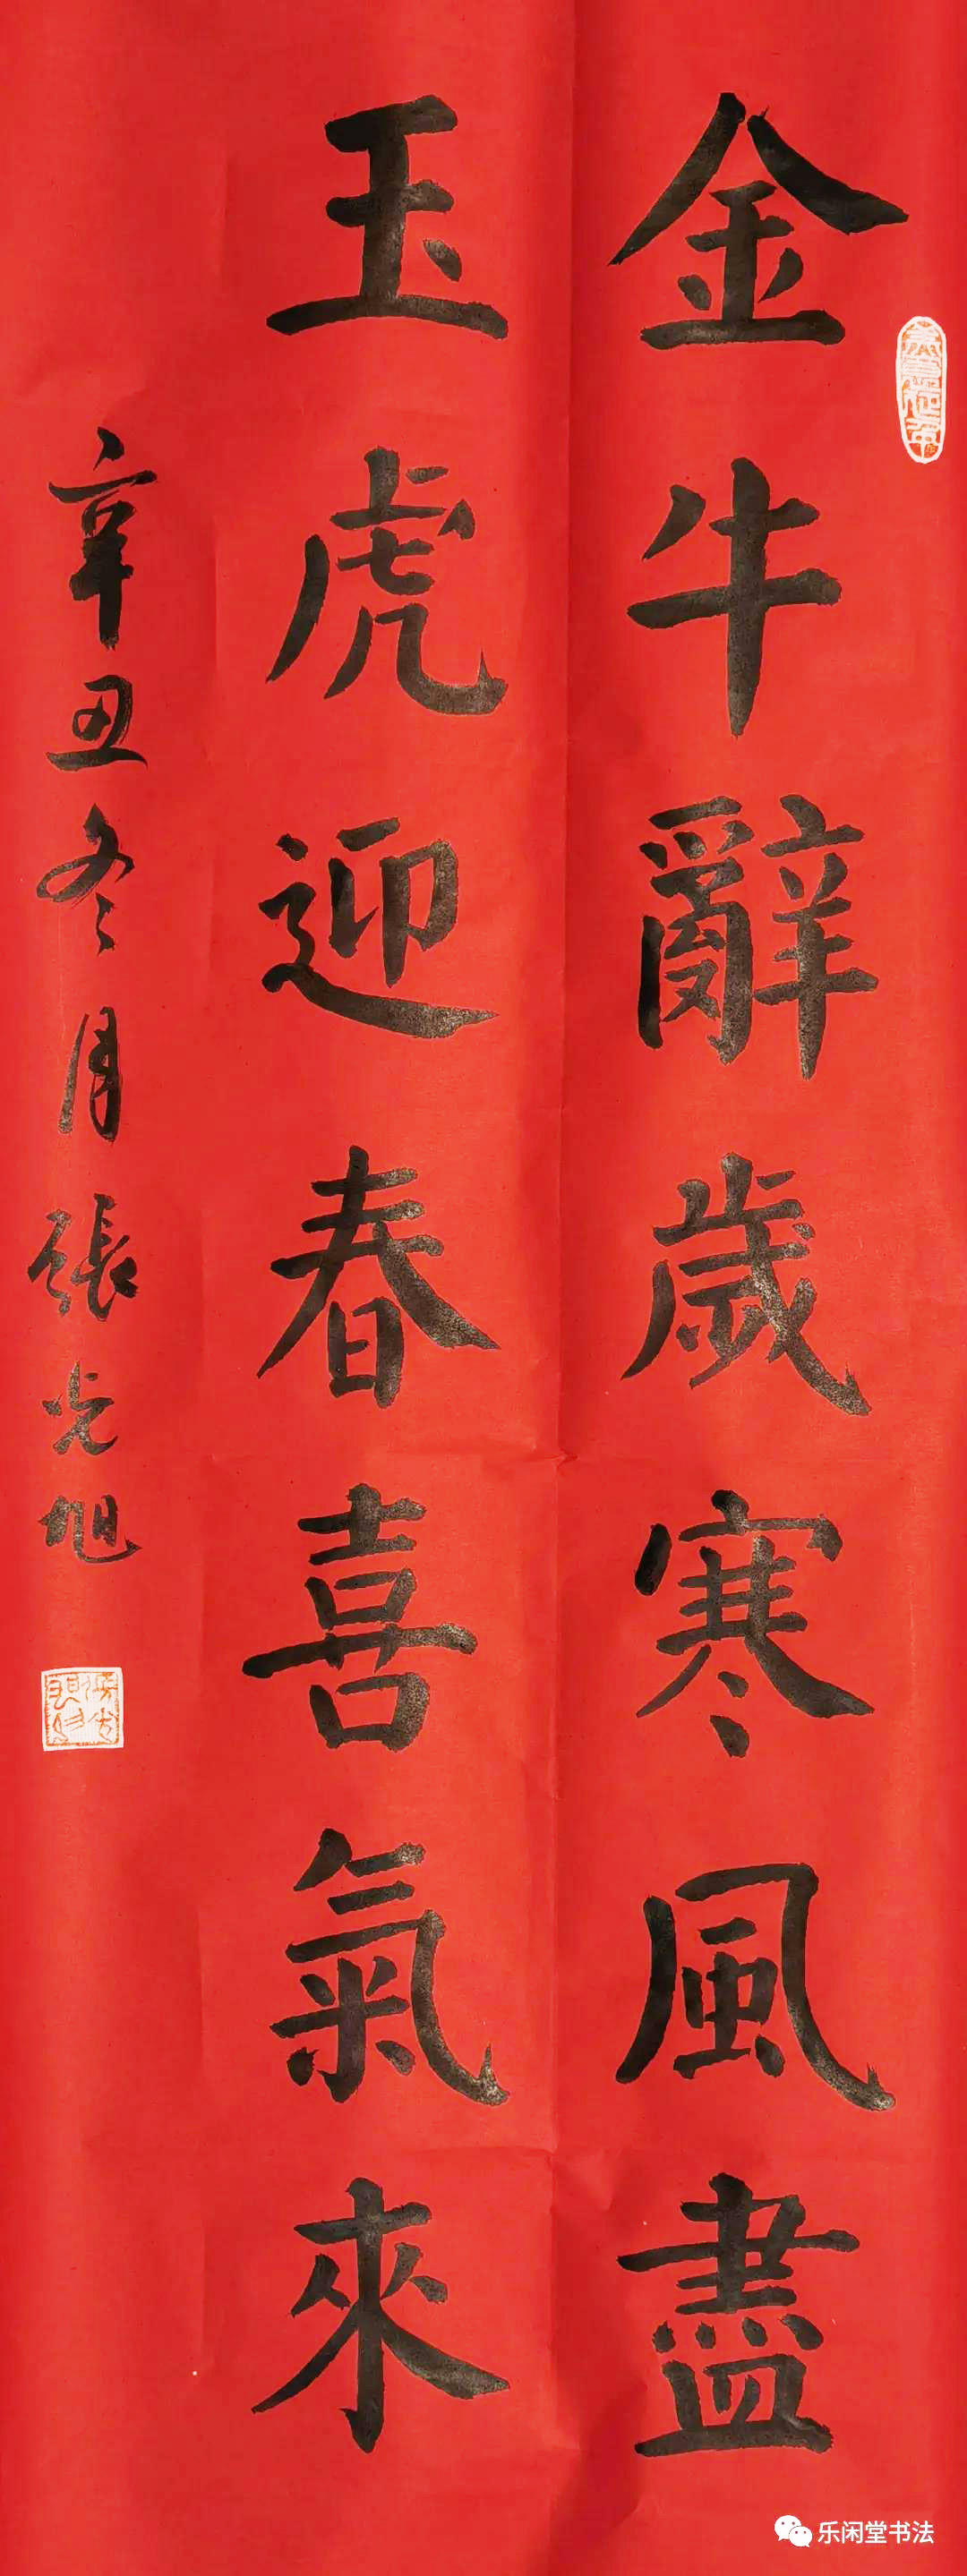 金牛辭歲寒風盡
玉虎迎春喜氣來
辛丑冬月張光旭
乐闲堂书法